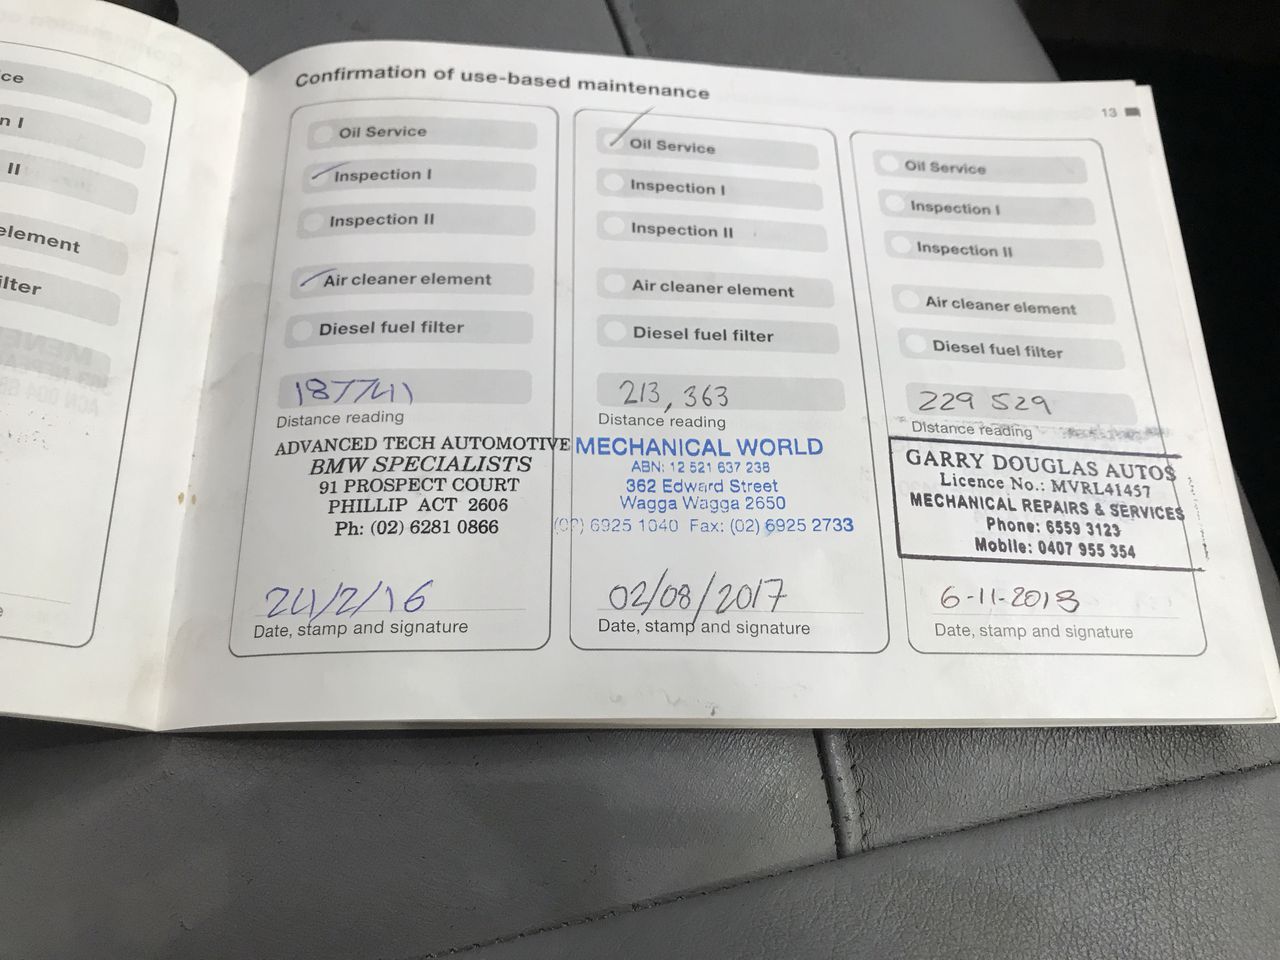 ce
n I
II
element
ilter
Confirmation of use-based maintenance
13
Oil Service
Inspection I
Inspection II
Air cleaner element
Diesel fuel filter
187741
Distance reading
ADVANCED TECH AUTOMOTIVE
BMW SPECIALISTS
91 PROSPECT COURT
PHILLIP ACT 2606
Ph: (02) 6281 0866
24/2/16
Date, stamp and signature
Oil Service
Inspection I
Inspection II
Air cleaner element
Diesel fuel filter
213,363
Distance reading
MECHANICAL WORLD
ABN: 12 521 637 238
362 Edward Street
Wagga Wagga 2650
(02) 6925 1040 Fax: (02) 6925 2733
02/08/2017
Date, stamp and signature
Oil Service
Inspection I
Inspection II
Air cleaner element
Diesel fuel filter
229 529
Distance reading
GARRY DOUGLAS AUTOS
Licence No.: MVRL41457
MECHANICAL REPAIRS & SERVICES
Phone: 6559 3123
Mobile: 0407 955 354
6-11-2018
Date, stamp and signature